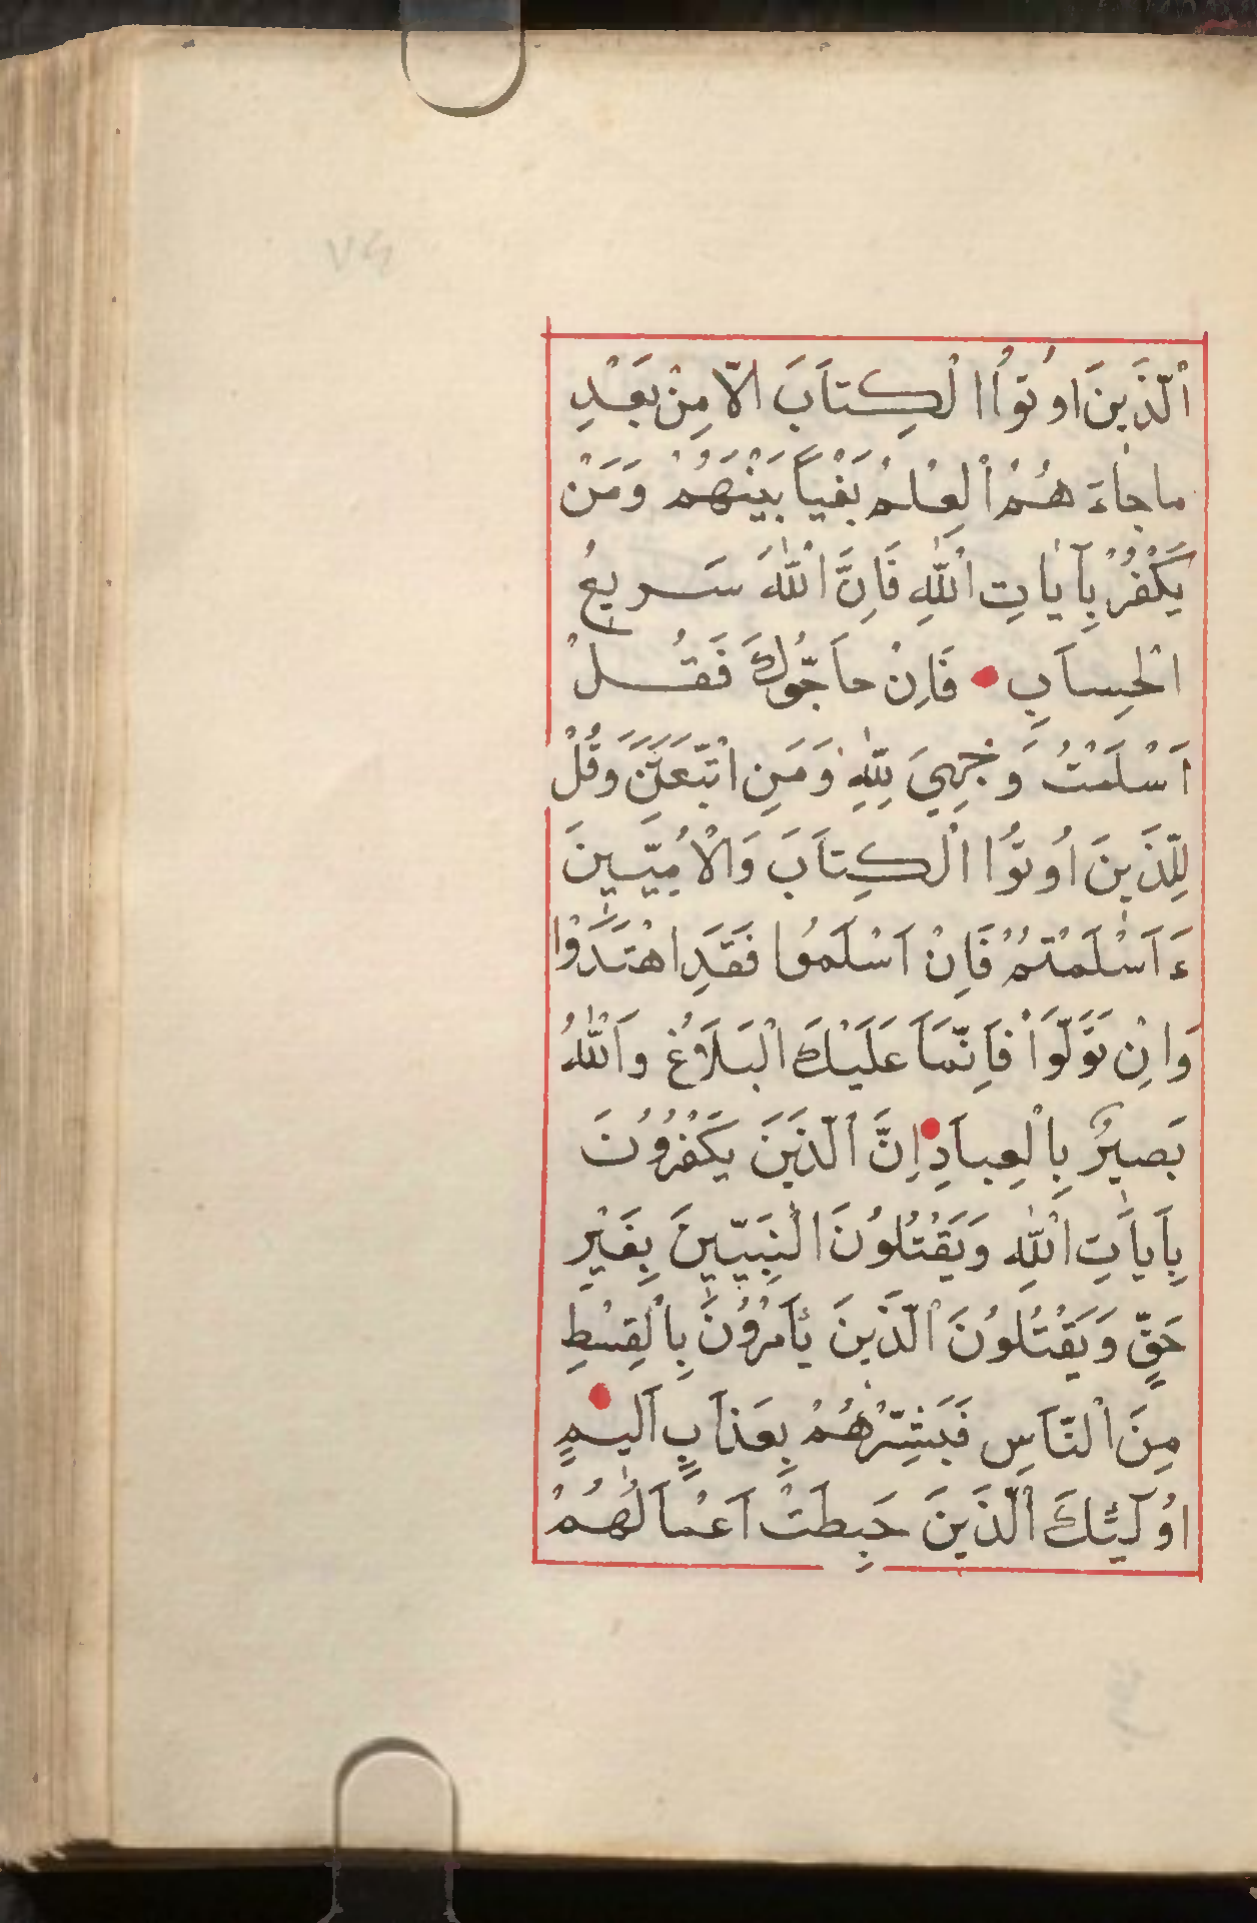 اَلَّذَينَ اوُتوُا الْكِتاَبَ الّاَ مِنْ بَعْدِ
ماجاٰءَ هُمُ اْلعِلْمُ بَغْياً بَيْنَهُمْ وَمَنْ
يَكْفُرْ بِآيٰاتِ اللّٰهِ فَاِنَّ اللّٰهَ سَريعُ
الْحِساَبِ فَاِنْ حاَجّوُكَ فَقُلْ
اَسْلَمْتُ وَجْهِيَ لِلّٰهِ وَمَنِ اتَّبَعَنِ وَقُلْ
لِلَّذَينَ اُوتوُا الْكِتاَبَ وَالْاُمِيّيِنَ
ءَاَسْلَمْتُمْ فَاِنْ اَسْلَموُا فَقَدِ اهْتَدَوْا
وَاِنْ تَوَلَّوْا فَاِنَّمَا عَلَيْكَ الْبَلاَغُ وَاللّٰهُ
بَصيرٌ بِالْعِباَدِ اِنَّ الَّذَينَ يَكْفُروُنَ
بِآَياَتِ اللّٰهِ وَيَقْتُلوُنَ النَّبِيّينَ بِغَيْرِ
حَقٍّ وَيَقْتُلوُنَ الَّذَينَ يَأْمُروُنَ بِالْقِسْطِ
مِنَ النّاَسِ فَبَشِّرْهُمْ بِعَذاَبٍ اَليمٍ
اوُلَآئِكَ الَّذَينَ حَبِطَتْ اَعْماَلُهُمْ